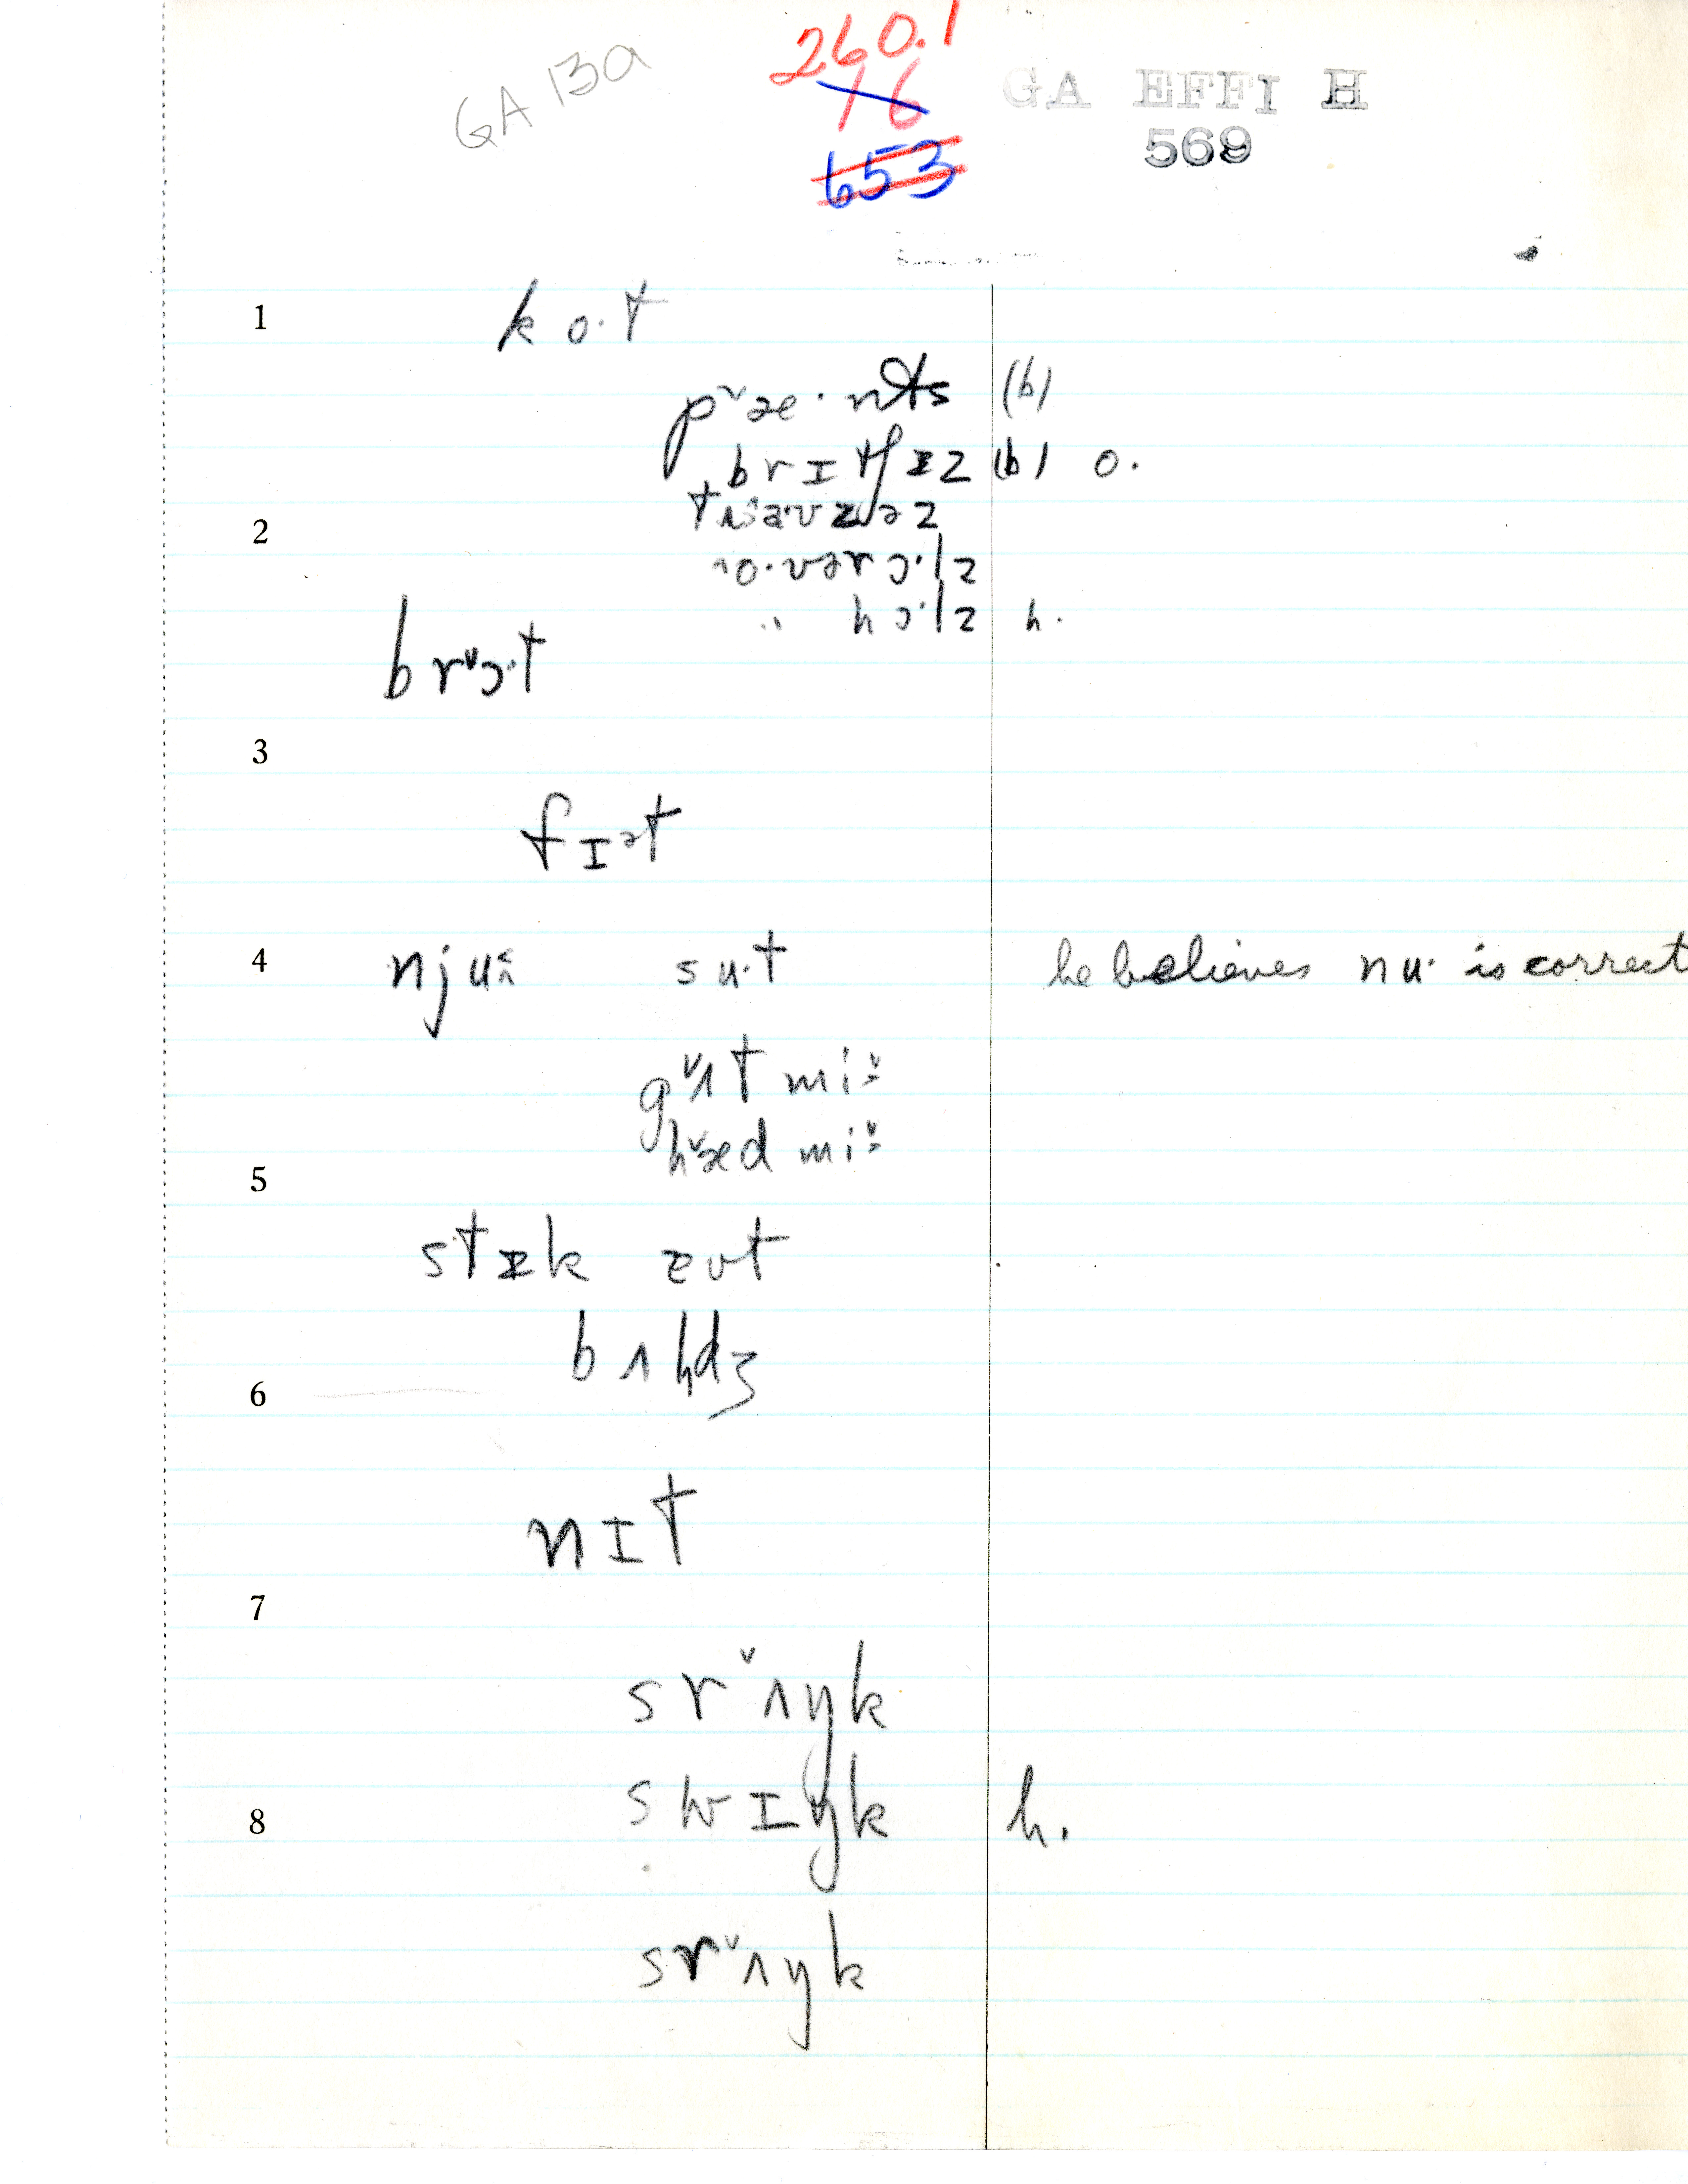 GA 13a
260.1
16
653
GA EFFI H
569
1
ko·t
pᵛæ·nts (b)
brɪtʃɪz (b) o.
2
o·vərɔ·lz
" hɔ·lz h.
brᵛɔ·t
3
fɪət
4 nju su·t he believes nu· is correct
gᵛʌt mi
hᵛæd mi
5
stɪk ɛut
bʌldʒ
6
nɪt
7
srᵛʌŋk
8 swɪŋk h.
srᵛʌŋk